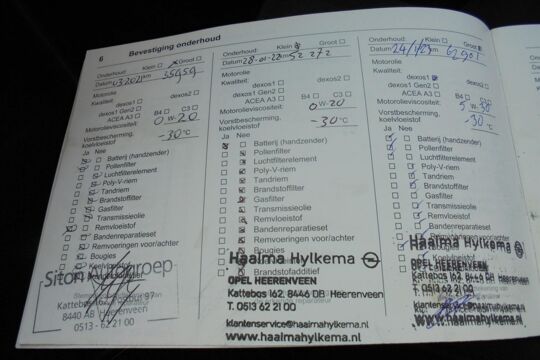 6
Bevestiging onderhoud
Onderhoud: Klein Groot
Datum 03 2021 km 35959
Motorolie
Kwaliteit: dexos2
dexos1
dexos1 Gen2
ACEA A3 B4 C3
Motorolieviscositeit:
0 W-20
Vorstbescherming,
koelvloeistof
-30 °C
Ja Nee
Batterij (handzender)
Pollenfilter
Luchtfilterelement
Poly-V-riem
Tandriem
Brandstoffilter
Gasfilter
Transmissieolie
Remvloeistof
Bandenreparatieset
Remvoeringen voor/achter
Bougies
Koelvloeistof
Siton Autogroep
8440 AB Heerenveen
0513 - 62 21 00
Onderhoud: Klein Groot
Datum 28-01-22 km 52 272
Motorolie
Kwaliteit: dexos2
dexos1
dexos1 Gen2
ACEA A3 B4 C3
Motorolieviscositeit:
0 W-20
Vorstbescherming,
koelvloeistof
-30 °C
Ja Nee
Batterij (handzender)
Pollenfilter
Luchtfilterelement
Poly-V-riem
Tandriem
Brandstoffilter
Gasfilter
Transmissieolie
Remvloeistof
Bandenreparatieset
Remvoeringen voor/achter
Bougies
Brandstofadditief
Haaima Hylkema
OPEL HEERENVEEN
Kattebos 162, 8446 DB Heerenveen
T. 0513 62 21 00
klantenservice@haaimahylkema.nl
www.haaimahylkema.nl
Onderhoud: Klein Groot
Datum 24/1/23 km
Motorolie
Kwaliteit: dexos2
dexos1
dexos1 Gen2
ACEA A3 B4 C3
Motorolieviscositeit:
5 W-30
Vorstbescherming,
koelvloeistof
-30 °C
Ja Nee
Batterij (handzender)
Pollenfilter
Luchtfilterelement
Poly-V-riem
Tandriem
Brandstoffilter
Gasfilter
Transmissieolie
Remvloeistof
Bandenreparatieset
Bougies
Koelvloeistof
Haaima Hylkema
OPEL HEERENVEEN
Kattebos 162, 8446 DB Heerenveen
T. 0513 62 21 00
klantenservice@haaimahylkema.nl
www.haaimahylkema.nl